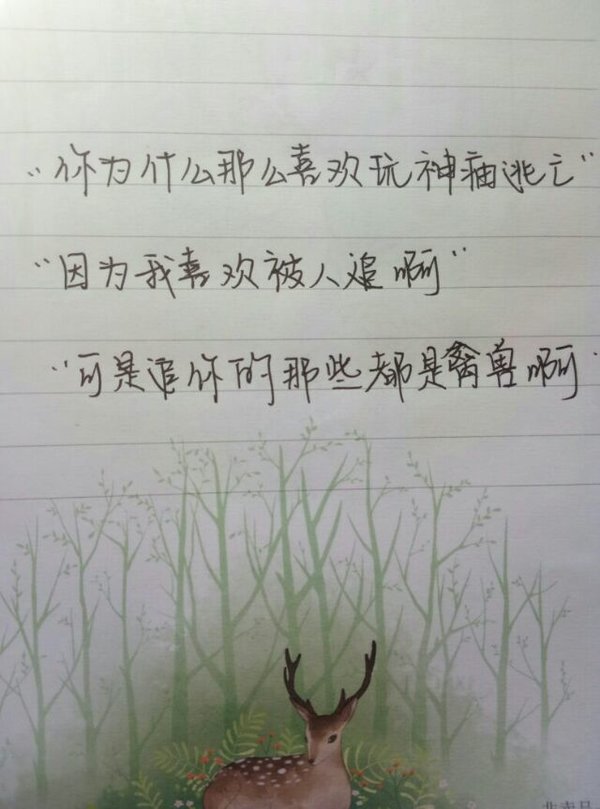 “你为什么那么喜欢玩神庙逃亡”
“因为我喜欢被人追啊”
“可是追你的那些都是禽兽啊.
非卖品